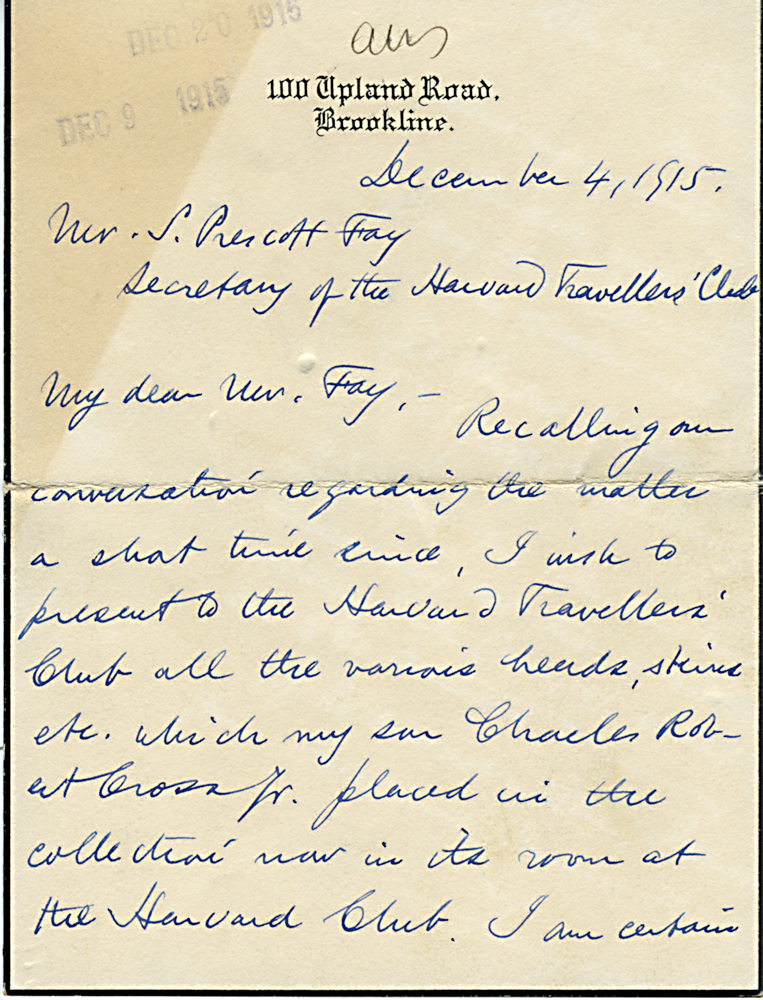 DEC 20 1915
ans
DEC 9 1915
100 Upland Road,
Brookline.
December 4, 1915.
Mr. S. Prescott Fay
Secretary of the Harvard Travellers' Club
My dear Mr. Fay, —
Recalling our
conversation regarding the matter
a short time since, I wish to
present to the Harvard Travellers'
Club all the various heads, skins
etc. which my son Charles Rob-
ert Cross Jr. placed in the
collection now in its room at
the Harvard Club. I am certain